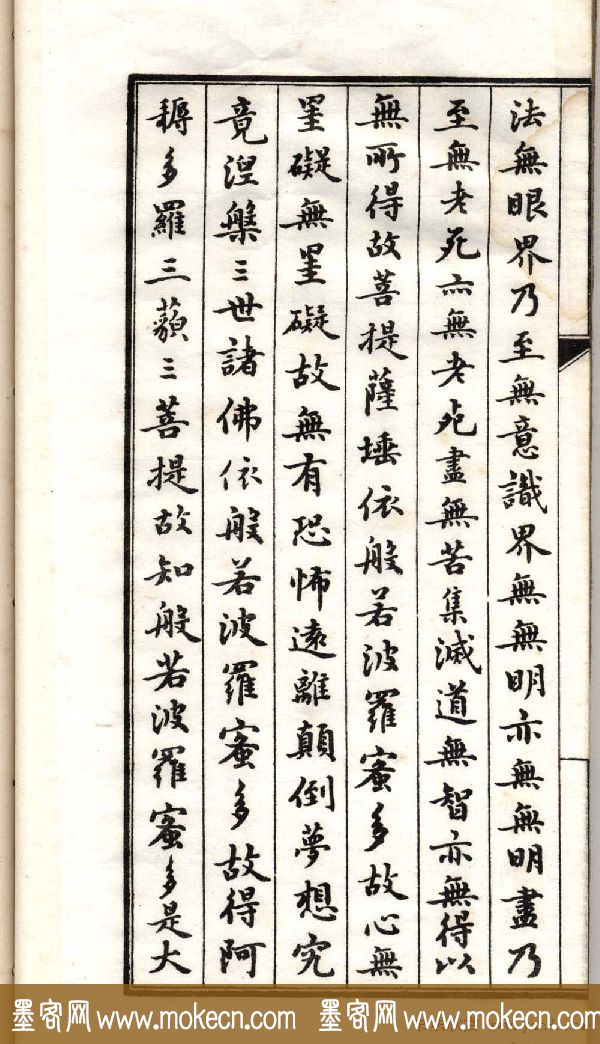 法無眼界乃至無意識界無無明亦無無明盡乃
至無老死亦無老死盡無苦集滅道無智亦無得以
無所得故菩提薩埵依般若波羅蜜多故心無
罣礙無罣礙故無有恐怖遠離顛倒夢想究
竟涅槃三世諸佛依般若波羅蜜多故得阿
耨多羅三藐三菩提故知般若波羅蜜多是大
墨客网 www.mokecn.com 墨客网 www.mokecn.com